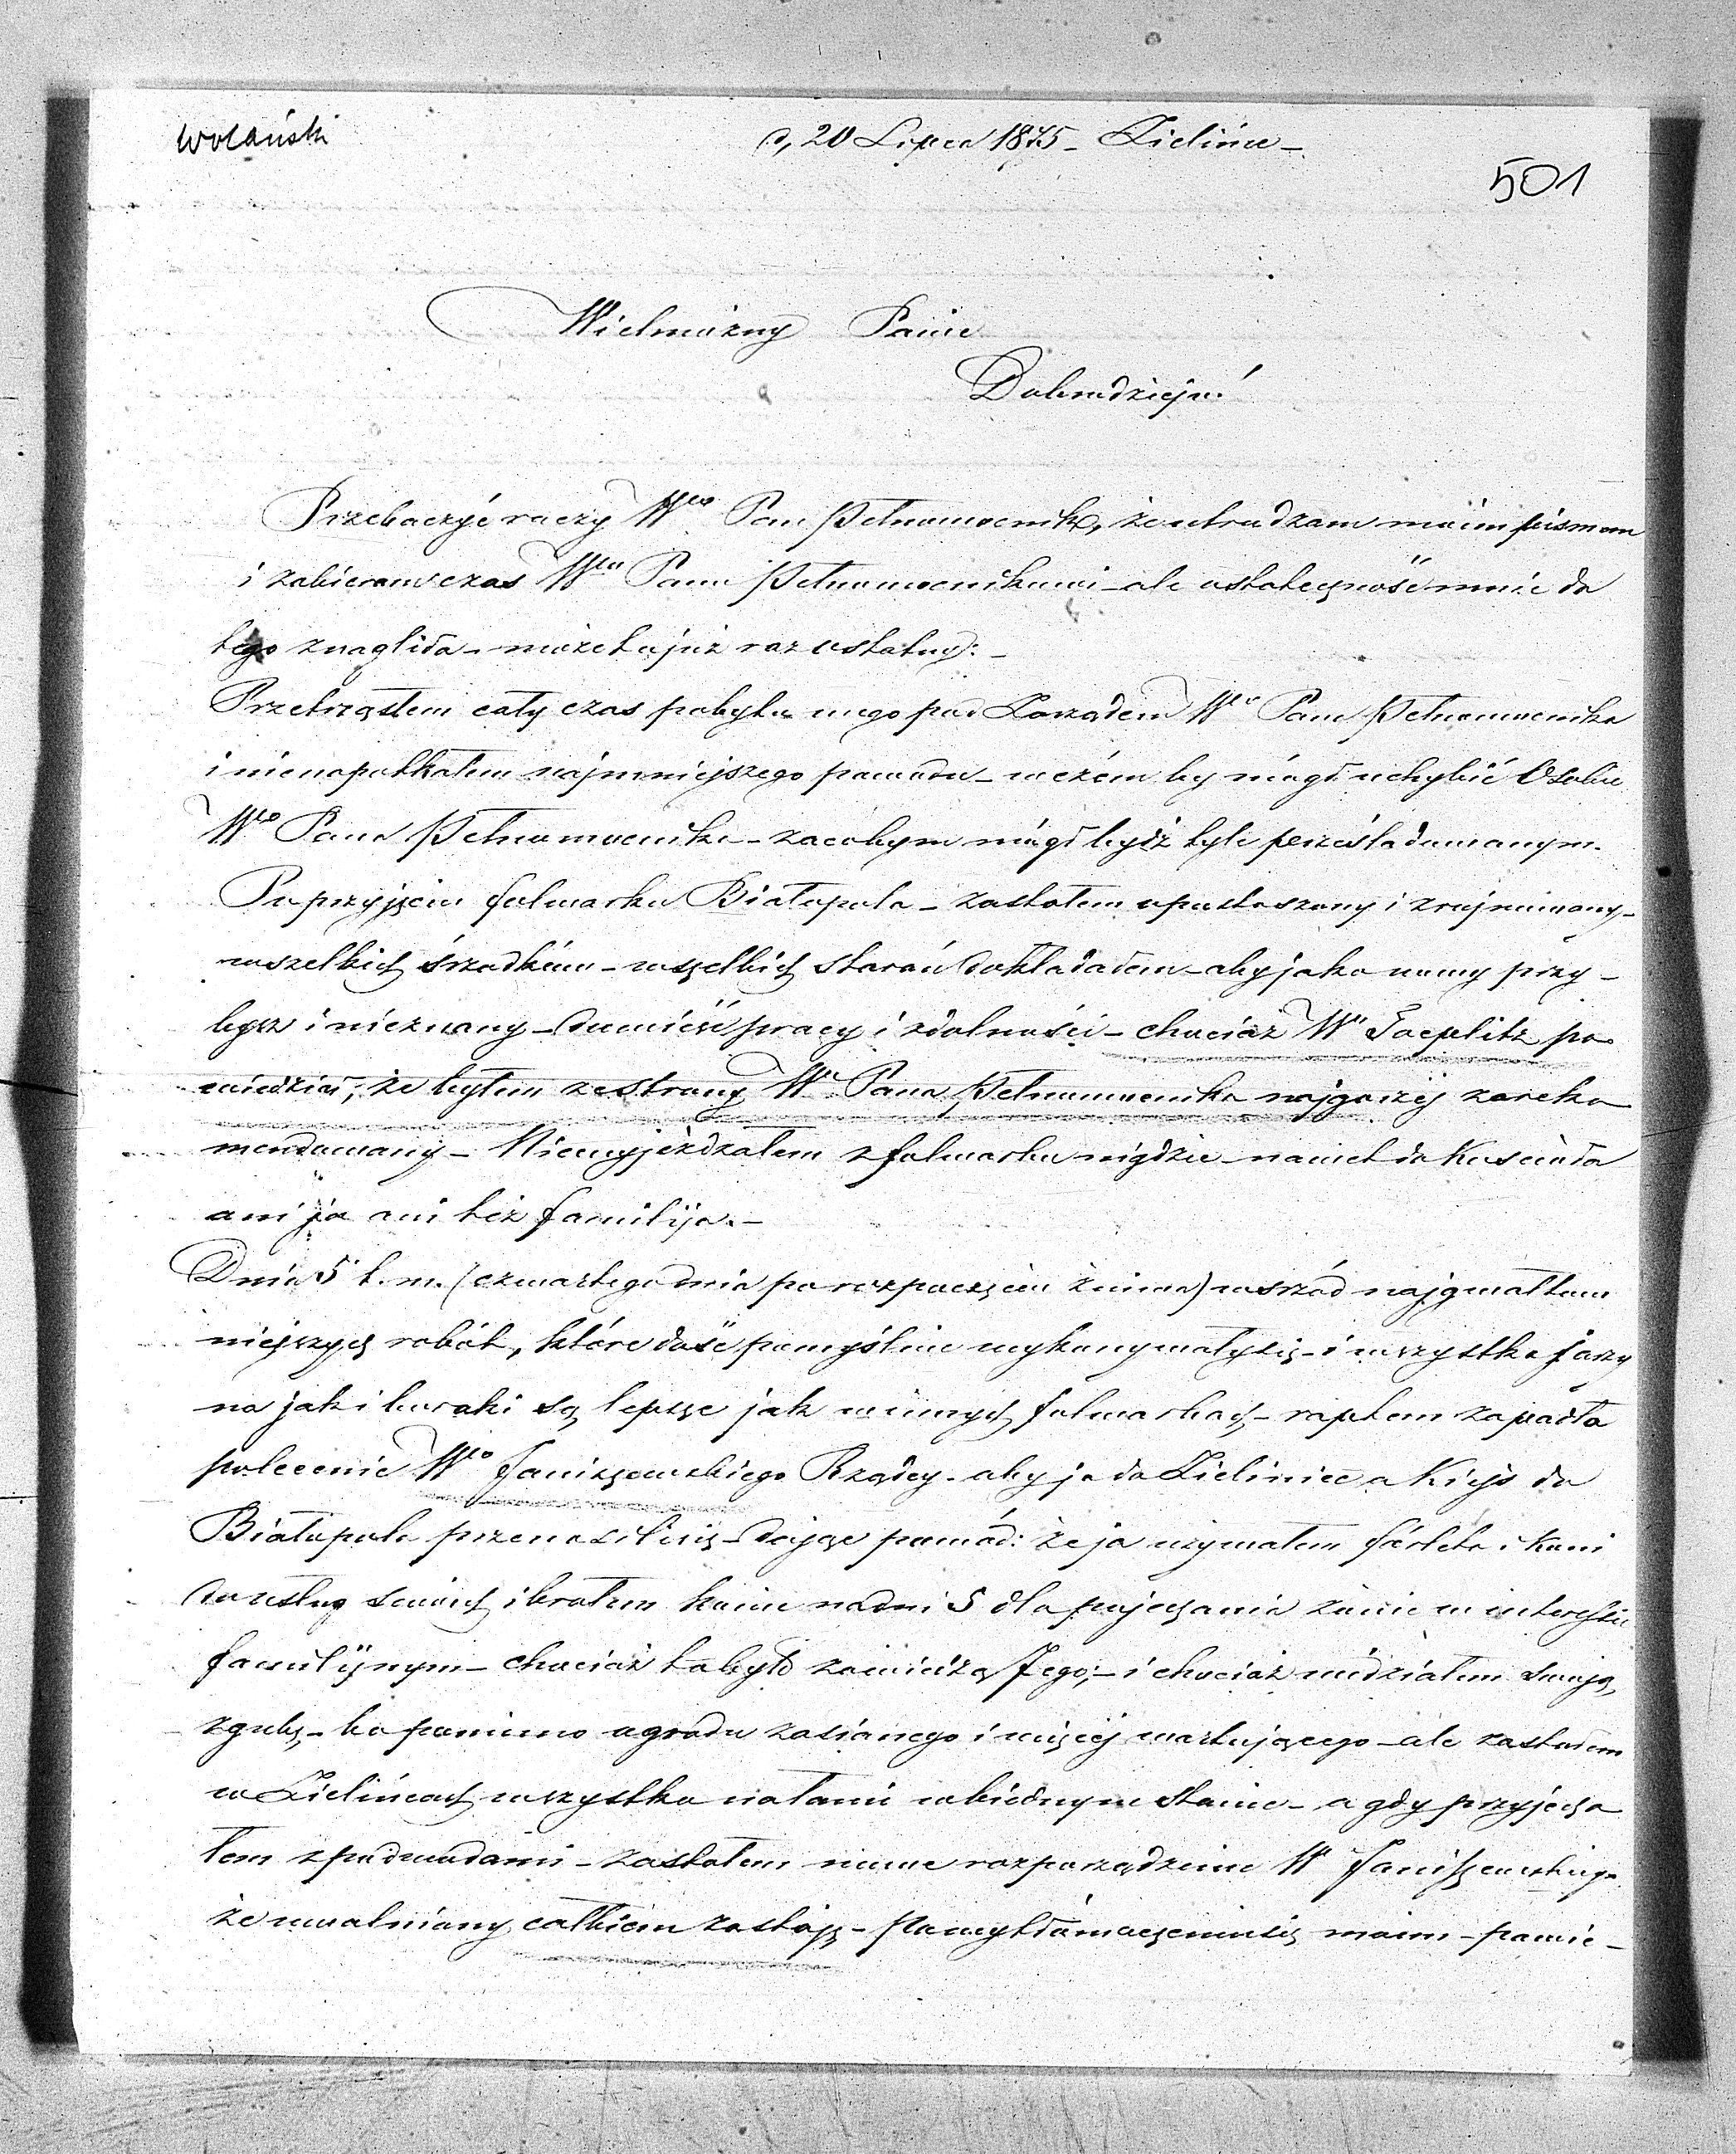 Wolański
d, 20 Lipca 1875 - Zielińce -
501
Wielmożny Panie
Dobrodzieju!
Przebaczyć raczy Wny Pan Pełnomocnik, że utrudzam moim pismem
i zabieram czas Wmu Panu Pełnomocnikowi - ale ostateczność mnie do
tego znagliła - może to już raz ostatny: -
Przetrząsłem cały czas pobytu mego pod Zarządem Wgo Pana Pełnomocnika
i nienapotkałem najmniejszego powodu - w czém by mógł uchybić Osobie
Wgo Pana Pełnomocnika - zacobym mógł bydź tyle prześladowanym.
Po przyjęciu folwarku Białopola - zastałem opustoszony i zrujnowany -
wszelkich śrzodków - wszelkich starań dokładałem - aby jako nowy przy -
bysz i nieznany - dowieść pracy i zdolności - chociaż W Toeplitz po
wiedział, że byłem ze strony W Pana Pełnomocnika najgorzéj zareko
mendowany - Niewyjeżdżałem z folwarku nigdzie - nawet do Kościoła
ani ja ani też familija. -
Dnia 5 b. m. (czwartego dnia po rozpoczęciu żniwa) wśrzód najgwałtow
niejszych robót, które dość pomyślnie wykonywałysię - i wszystko jarzy
na jak i buraki są lepsze jak w innych folwarkach - raptem zapadło
polecenie Wgo Janiszewskiego Rządcy - aby ja do Zieliniec a Kijo do
Białopola przenosilisię - dając powód: że ja używałem i koni
do usług swoich i brałem konie na dni 5 dla pojechania żonie w interesie
familijnym - chociaż to było za wiedzą Jego; - i chociaż widziałem swoją
zgubę - bo pomimo ogrodu zasianego i więcéj wartującego - ale zastałem
w Zielińcach wszystko w biednym stanie - a gdy przyjecha
łem z podwodami - zastałem nowe rozporządzenie W Janiszewskiego
że uwolniony całkiem zostaję - moim - powie -